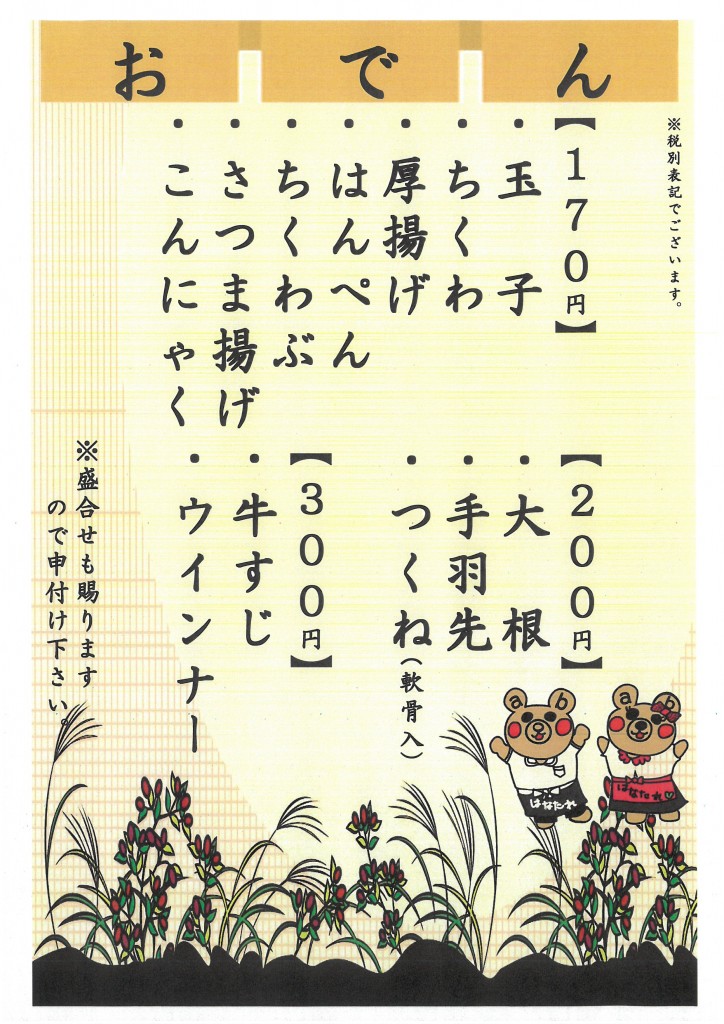 おでん
※税別表記でございます。
【170円】
・玉子
・ちくわ
・厚揚げ
・はんぺん
・ちくわぶ
・さつま揚げ
・こんにゃく
【200円】
・大根
・手羽先
・つくね(軟骨入)
【300円】
・牛すじ
・ウインナー
※盛合せも賜ります
ので申付け下さい。
a b
はなたれ
a b
はなたれ♡